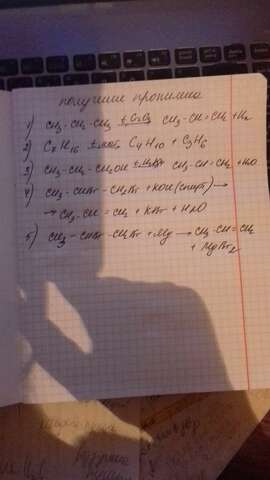 получение пропилена
1) CH3-CH2-CH3 t, Cr2O3 CH3-CH=CH2+H2
2) C7H16 C4H10 + C3H6
3) CH3-CH2-CH2OH CH3-CH=CH2+H2O
4) CH3-CHBr-CH2Br+KOH(спирт)→
→ CH3-CH=CH2+KBr+H2O
5) CH3-CHBr-CH2Br+Mg→CH3-CH=CH2
+MgBr2